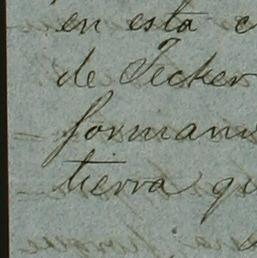 en esta c
de Tecker
formand
tierra qu